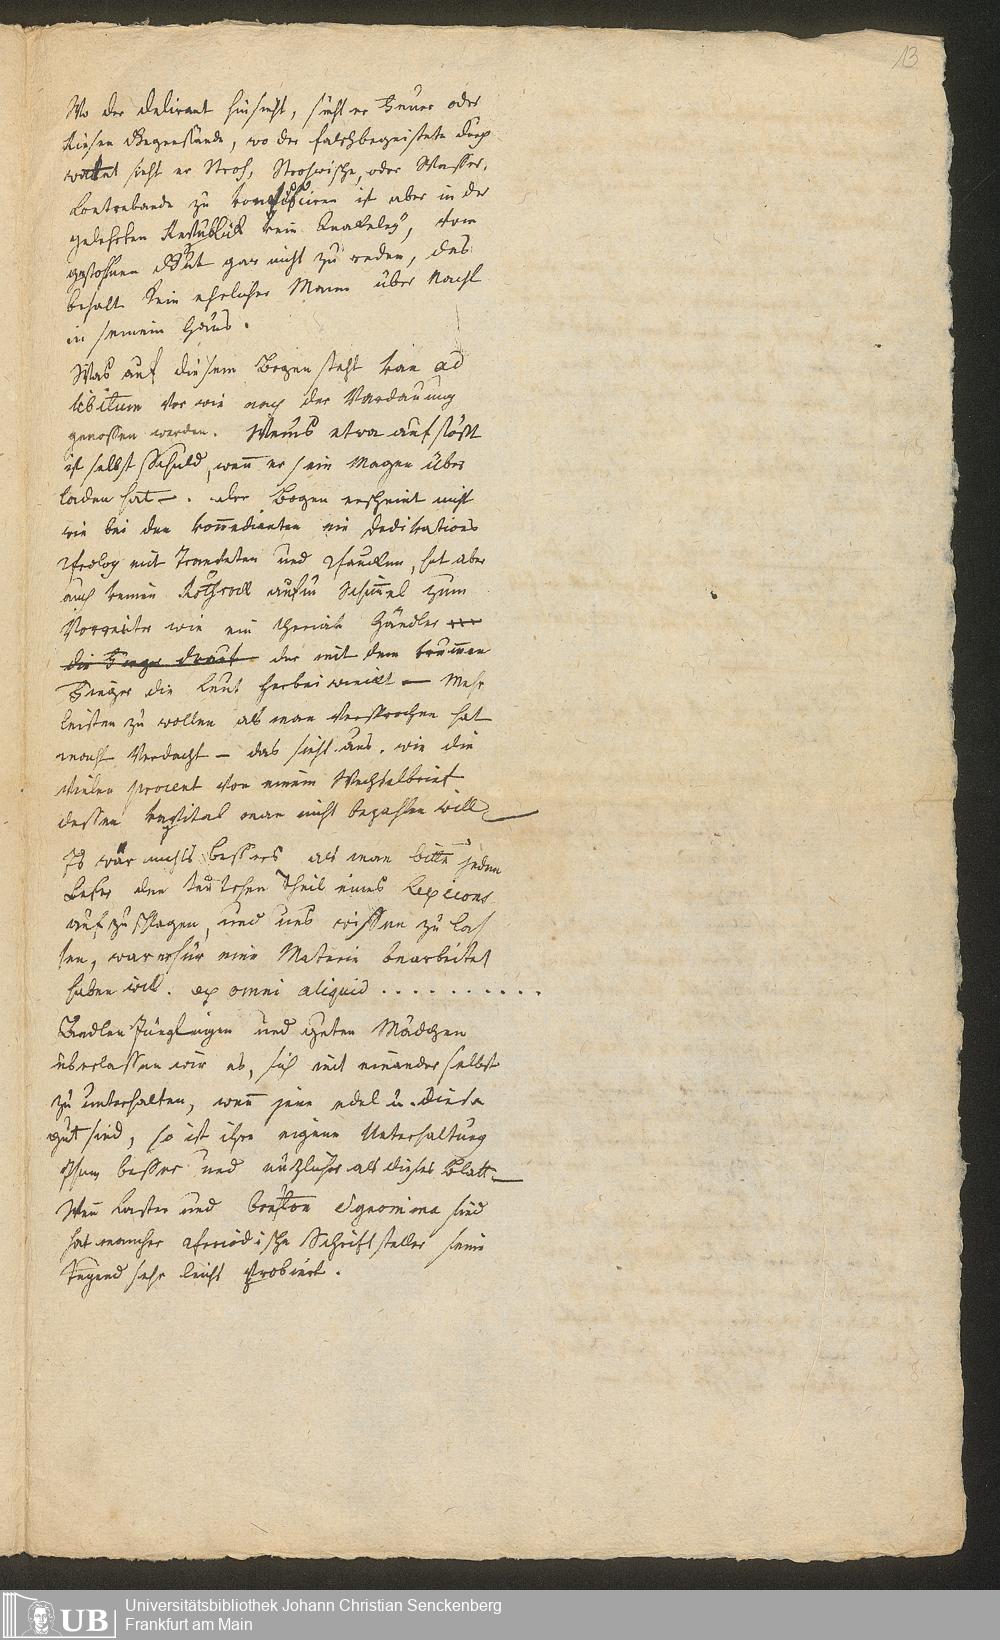 13
Wo der delirant hinsieht, sieht er Feuer oder
Riesen Gegenstände, wo der falschbegeisterte
sieht er Stroh, Strohwische, oder Wasser.
Contrebande zu confisciren ist aber in der
gelehrten Republick kein, vom
gestohlnen Gut gar nicht zu reden, das
behalt kein ehrlicher Mann über Nacht
in seinem Haus.
Was auf diesem Bogen steht kan ad
libitum vor wie nach der Verdauung
genossen werden. Wems etwa aufstößt
ist selbst Schuld, wenn er sein Magen über
laden hat —. der Bogen erscheint nicht
wie bei den komedianten ein Dedikations
Prolog mit Trompeten und Paucken, hat aber
auch keinen Rothrock aufm Schimel zum
Vorreiter wie ein theriak Händler
die Finger drauf der mit dem krummen
Finger die Leut herbei winckt — Mehr
leisten zu wollen als man versprochen hat
macht Verdacht — das sieht aus. wie die
vielen procent von einem Wechselbrief
dessen kapital man nicht bezahlen will
Es wär nichts bessers als man bitte jeden
Leser den teutschen Theil eines Lexicons
aufzuschlagen, und uns wissen zu las
sen, was er für eine Materie bearbeitet
haben will. ex omni aliquid . . . . . . . . . .
Edlen Jünglingen und guten Mädgen
überlassen wir es, sich mit einander selbst
zu unterhalten, wenn jene edel u. diese
gut sind, so ist ihre eigene Unterhaltung
schon besser und nüzlicher als dieses Blatt —
Wenn Laster und sind
hat mancher periodische Schriftsteller seine
Tugend sehr leicht probiert.
UB
Universitätsbibliothek Johann Christian Senckenberg
Frankfurt am Main